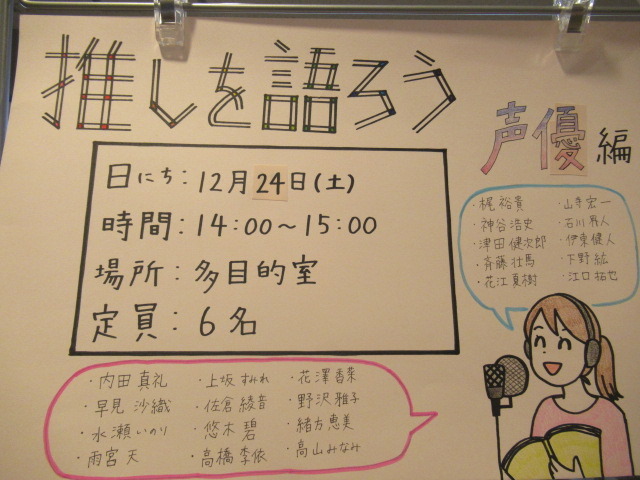 推しを語ろう
声優編
日にち：12月24日(土)
時間：14:00～15:00
場所：多目的室
定員：6名
・梶裕貴
・神谷浩史
・津田健次郎
・斉藤壮馬
・花江夏樹
・山寺宏一
・石川界人
・伊東健人
・下野紘
・江口拓也
・内田真礼
・早見沙織
・水瀬いのり
・雨宮天
・上坂すみれ
・佐倉綾音
・悠木碧
・高橋李依
・花澤香菜
・野沢雅子
・緒方恵美
・高山みなみ